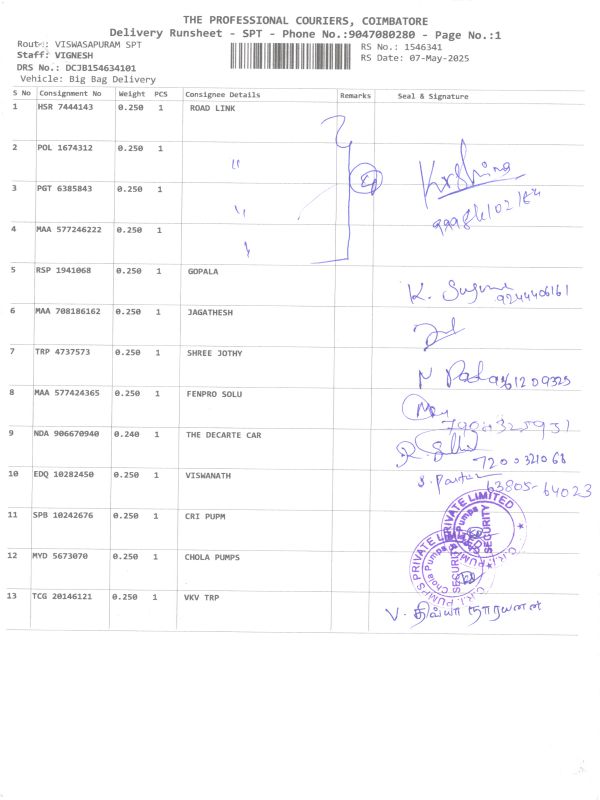 THE PROFESSIONAL COURIERS, COIMBATORE
Delivery Runsheet - SPT - Phone No.:9047080280 - Page No.:1
Route: VISWASAPURAM SPT
RS No.: 1546341
Staff: VIGNESH
RS Date: 07-May-2025
DRS No.: DCJB154634101
Vehicle: Big Bag Delivery
S No Consignment No Weight PCS Consignee Details Remarks Seal & Signature
1 HSR 7444143 0.250 1 ROAD LINK
2 POL 1674312 0.250 1 "
3 PGT 6385843 0.250 1 "
4 MAA 577246222 0.250 1 "
Krshina
5 RSP 1941068 0.250 1 GOPALA
K. Suguna 9244406161
6 MAA 708186162 0.250 1 JAGATHESH
7 TRP 4737573 0.250 1 SHREE JOTHY
8 MAA 577424365 0.250 1 FENPRO SOLU
9 NDA 906670940 0.240 1 THE DECARTE CAR
7200321068
10 EDQ 10282450 0.250 1 VISWANATH
63805-64023
11 SPB 10242676 0.250 1 CRI PUPM
C.R.I. PUMPS PRIVATE LIMITED
Chola Pumps
SECURITY
12 MYD 5673070 0.250 1 CHOLA PUMPS
C.R.I. PUMPS PRIVATE LIMITED
Chola Pumps
SECURITY
13 TCG 20146121 0.250 1 VKV TRP
V. திவ்யா நாராயணன்